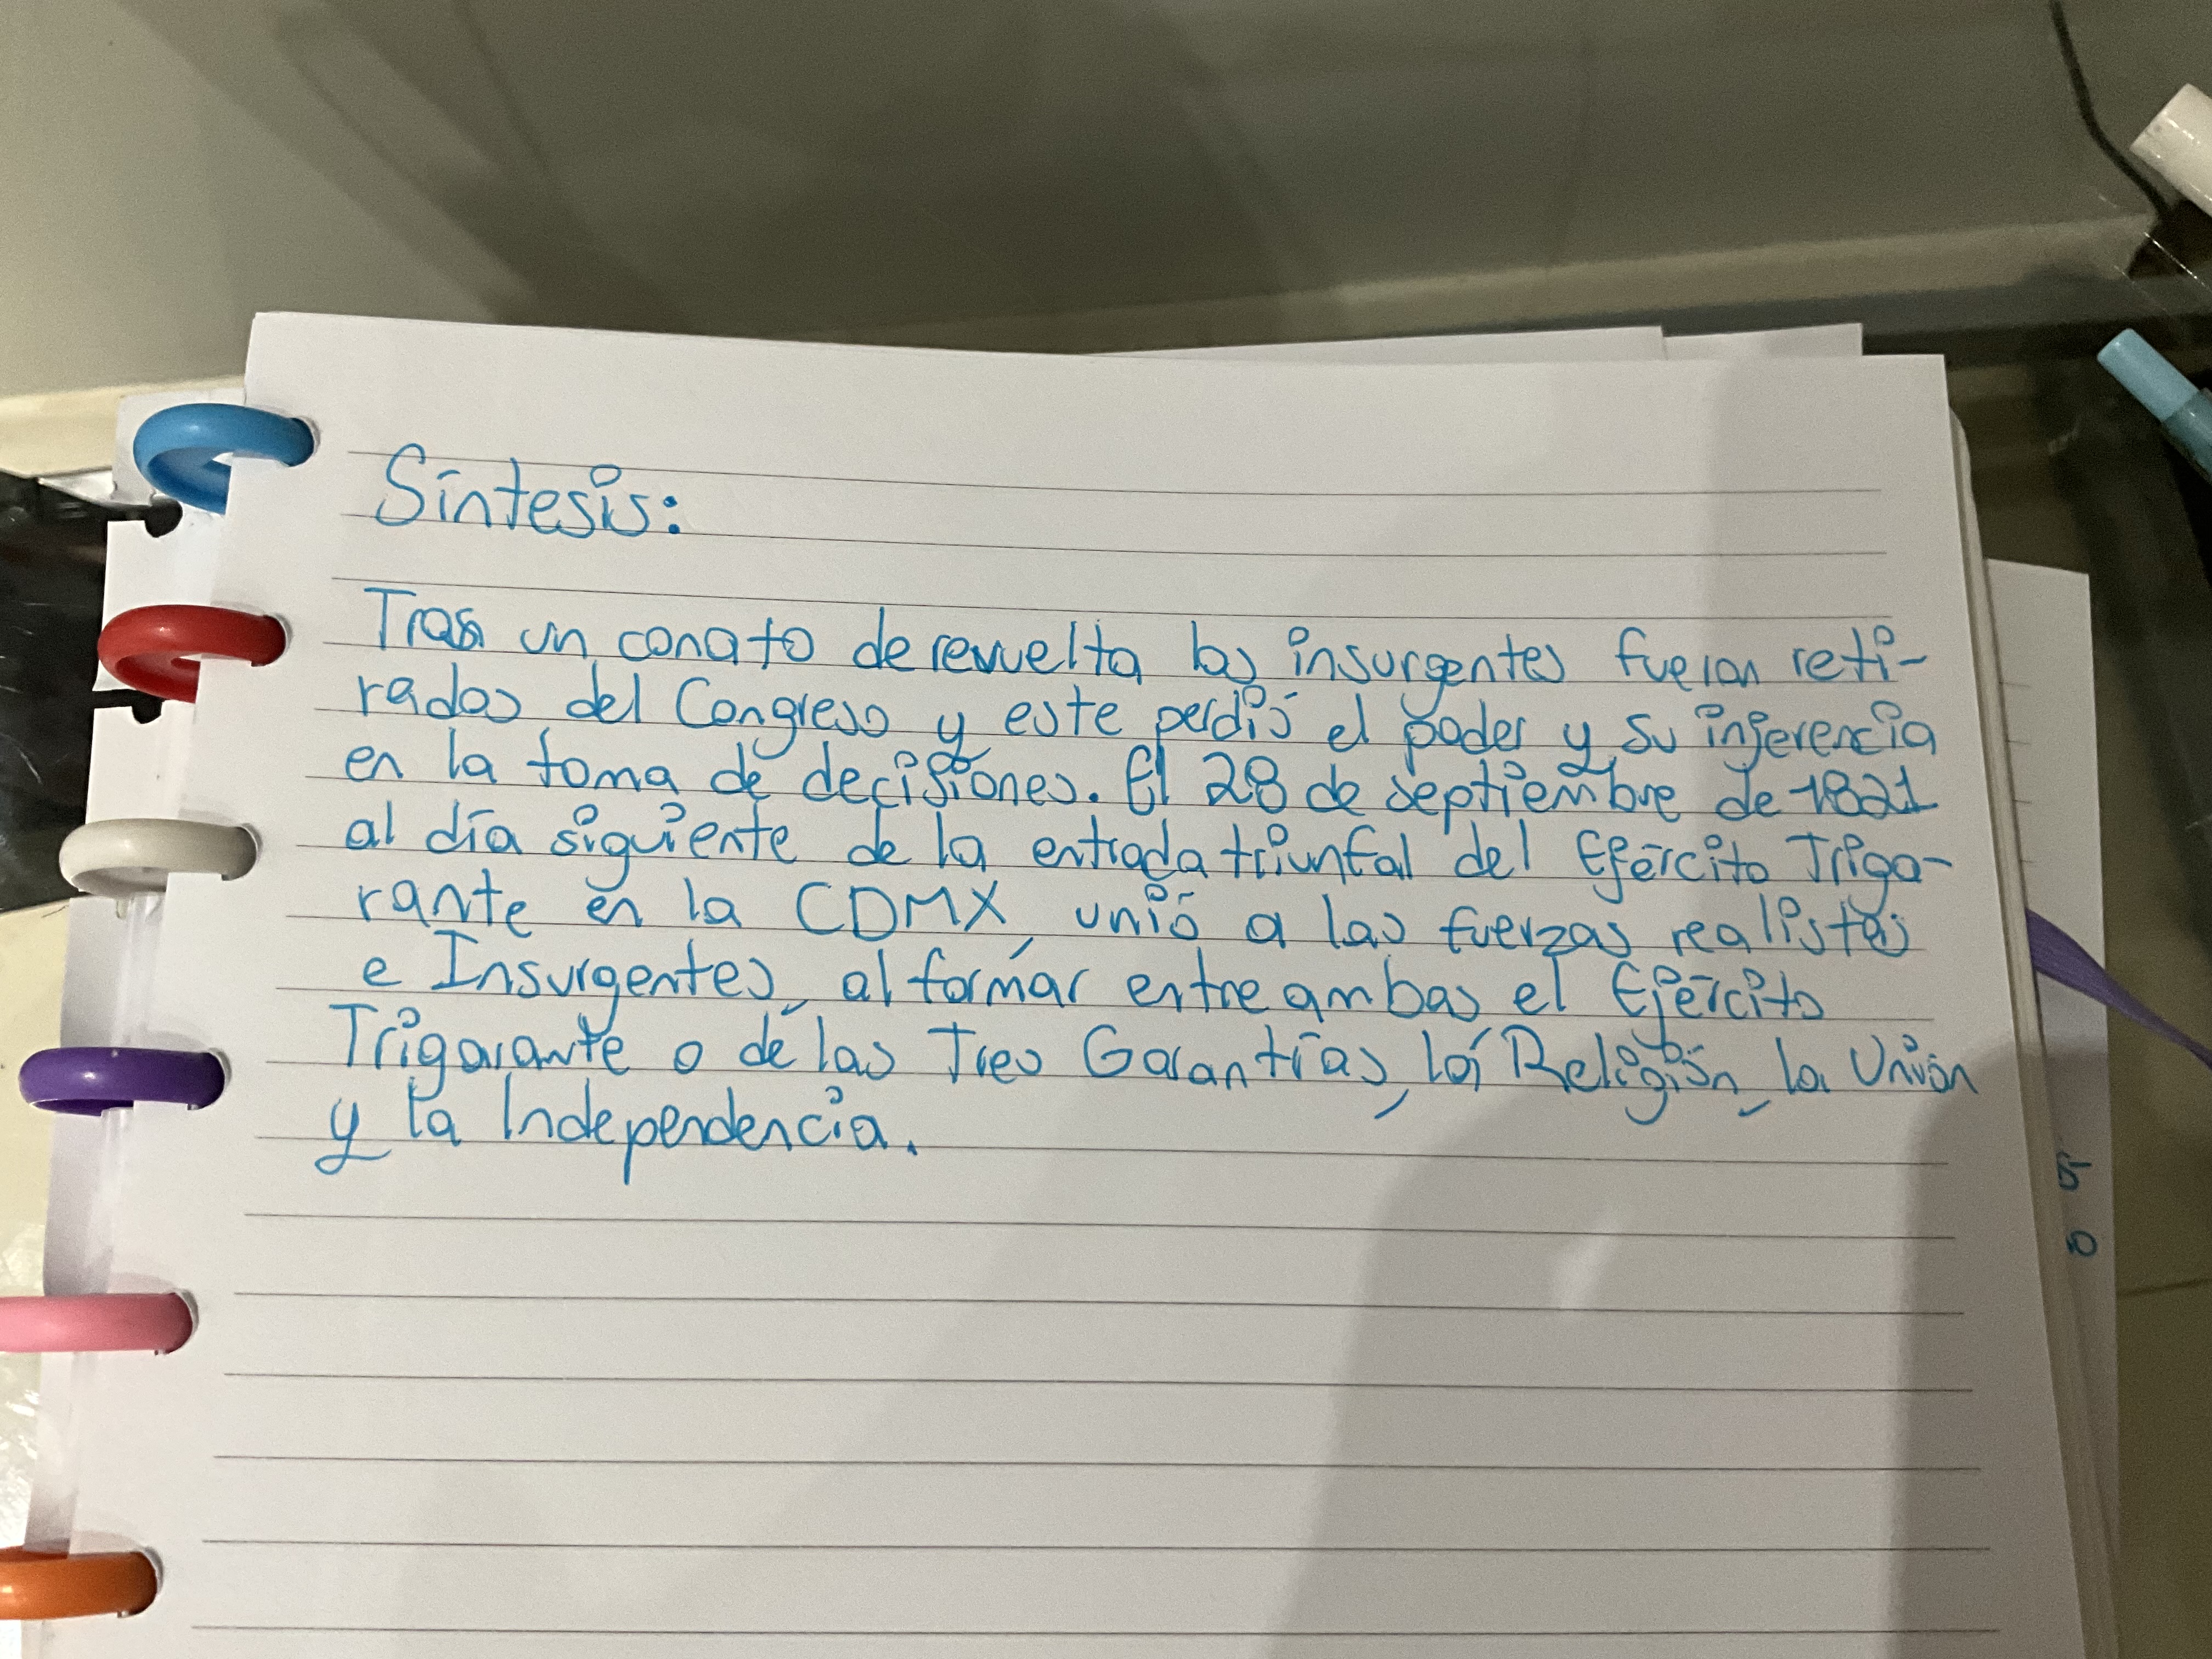 Síntesis:
Tras un conato de revuelta los insurgentes fueron reti-
rados del Congreso y este perdió el poder y su injerencia
en la toma de decisiones. El 28 de septiembre de 1821
al día siguiente de la entrada triunfal del Ejército Triga-
rante en la CDMX, unió a las fuerzas realistas
e Insurgentes, al formar entre ambas el Ejército
Trigarante o de las Tres Garantías, la Religión, la Unión
y la Independencia.